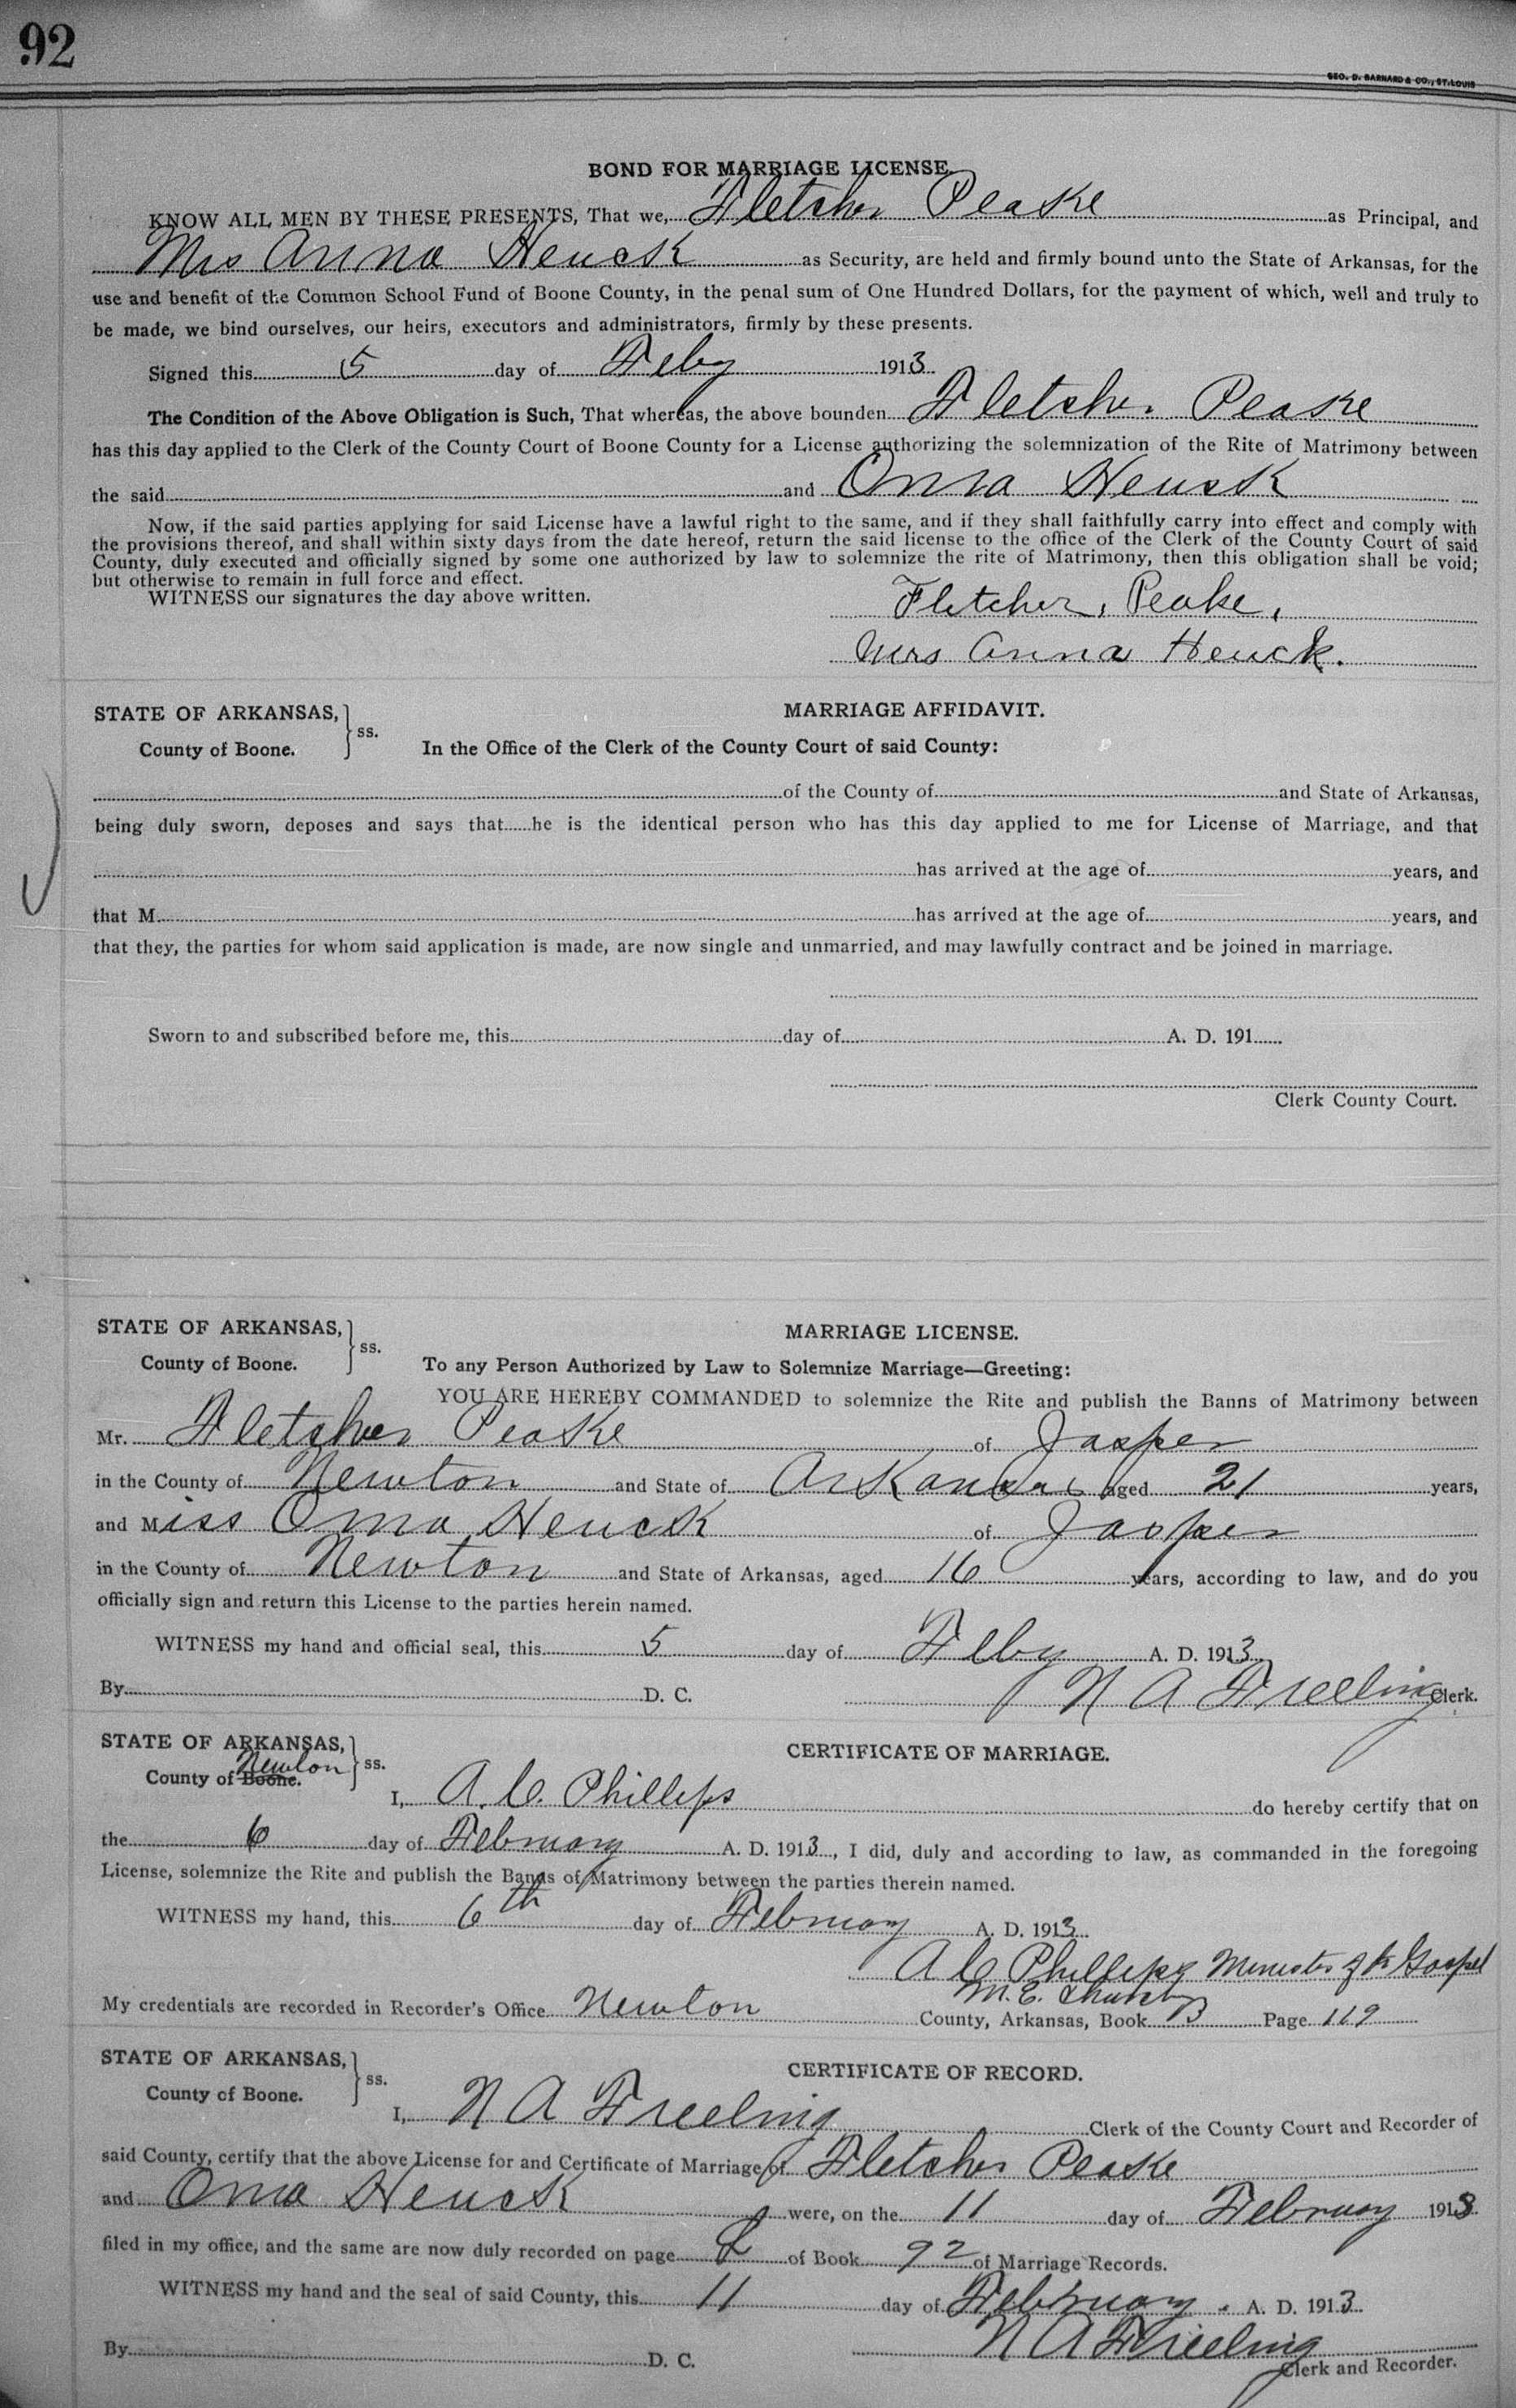 92
GEO. D. BARNARD & CO., ST. LOUIS
BOND FOR MARRIAGE LICENSE.
KNOW ALL MEN BY THESE PRESENTS, That we, Fletcher Peake as Principal, and
Mrs Anna Heuck as Security, are held and firmly bound unto the State of Arkansas, for the
use and benefit of the Common School Fund of Boone County, in the penal sum of One Hundred Dollars, for the payment of which, well and truly to
be made, we bind ourselves, our heirs, executors and administrators, firmly by these presents.
Signed this 5 day of Feby 1913
The Condition of the Above Obligation is Such, That whereas, the above bounden Fletcher Peake
has this day applied to the Clerk of the County Court of Boone County for a License authorizing the solemnization of the Rite of Matrimony between
the said and Oma Heuck
Now, if the said parties applying for said License have a lawful right to the same, and if they shall faithfully carry into effect and comply with
the provisions thereof, and shall within sixty days from the date hereof, return the said license to the office of the Clerk of the County Court of said
County, duly executed and officially signed by some one authorized by law to solemnize the rite of Matrimony, then this obligation shall be void;
but otherwise to remain in full force and effect.
WITNESS our signatures the day above written.
Fletcher, Peake,
Mrs Anna Heuck.
STATE OF ARKANSAS, } ss.
MARRIAGE AFFIDAVIT.
County of Boone. In the Office of the Clerk of the County Court of said County:
of the County of and State of Arkansas,
being duly sworn, deposes and says that he is the identical person who has this day applied to me for License of Marriage, and that
has arrived at the age of years, and
that M has arrived at the age of years, and
that they, the parties for whom said application is made, are now single and unmarried, and may lawfully contract and be joined in marriage.
Sworn to and subscribed before me, this day of A. D. 191
Clerk County Court.
STATE OF ARKANSAS, } ss.
MARRIAGE LICENSE.
County of Boone. To any Person Authorized by Law to Solemnize Marriage—Greeting:
YOU ARE HEREBY COMMANDED to solemnize the Rite and publish the Banns of Matrimony between
Mr. Fletcher Peake of Jasper
in the County of Newton and State of Arkansas aged 21 years,
and Miss Oma Heuck of Jasper
in the County of Newton and State of Arkansas, aged 16 years, according to law, and do you
officially sign and return this License to the parties herein named.
WITNESS my hand and official seal, this 5 day of Feby A. D. 1913
By D. C. N A Freeling Clerk.
STATE OF ARKANSAS, } ss.
CERTIFICATE OF MARRIAGE.
Newton
County of Boone.
I, A. C. Phillips do hereby certify that on
the 6 day of February A. D. 1913, I did, duly and according to law, as commanded in the foregoing
License, solemnize the Rite and publish the Banns of Matrimony between the parties therein named.
WITNESS my hand, this 6th day of February A. D. 1913
A C Phillips Minister of the Gospel
M. E. Church
My credentials are recorded in Recorder's Office Newton County, Arkansas, Book B Page 119
STATE OF ARKANSAS, } ss.
CERTIFICATE OF RECORD.
County of Boone.
I, N A Freeling Clerk of the County Court and Recorder of
said County, certify that the above License for and Certificate of Marriage of Fletcher Peake
and Oma Heuck were, on the 11 day of February 1913
filed in my office, and the same are now duly recorded on page of Book 92 of Marriage Records.
WITNESS my hand and the seal of said County, this 11 day of February. A. D. 1913
N A Freeling
By D. C. Clerk and Recorder.